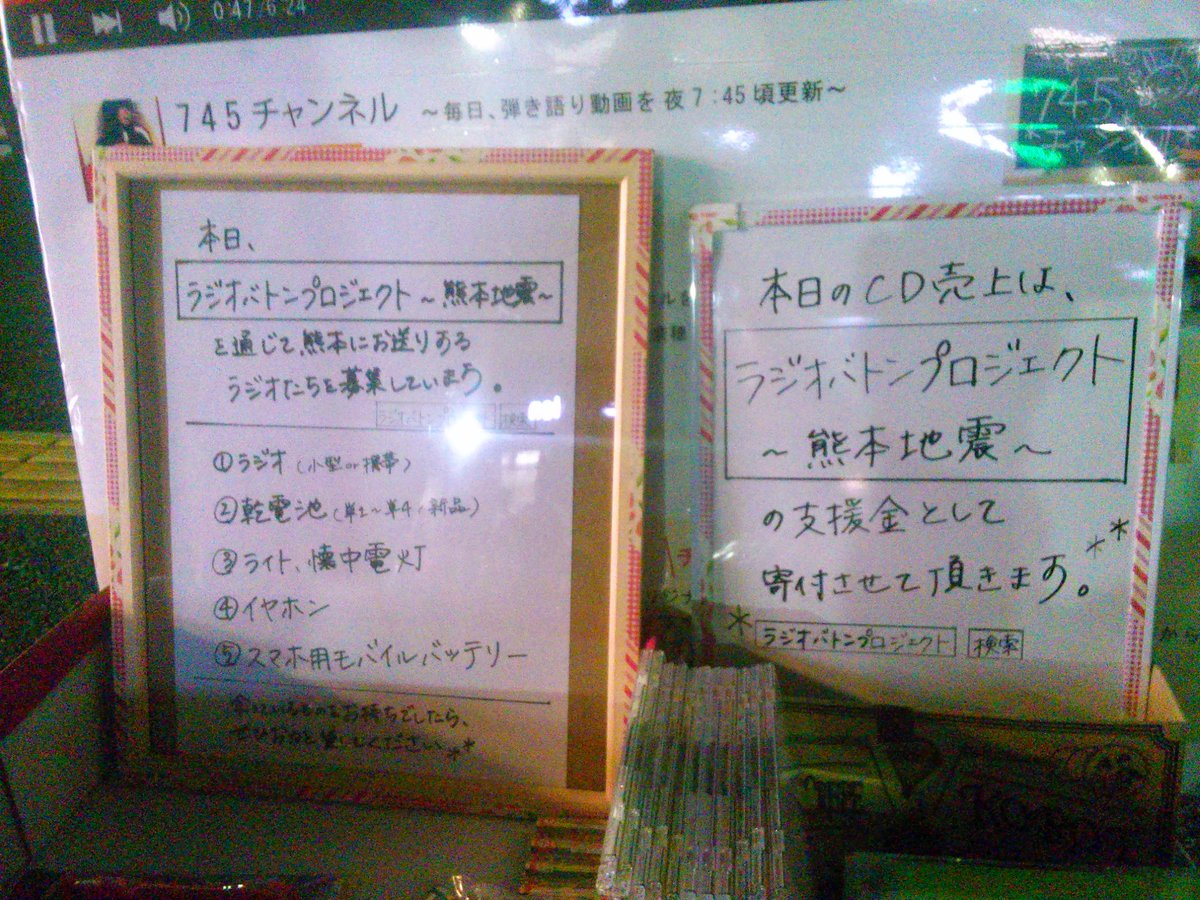 0:47/6:24
745チャンネル ～毎日、弾き語り動画を 夜7:45頃更新～
745
チャンネル
本日、
ラジオバトンプロジェクト～熊本地震～
を通じて、熊本にお送りする
ラジオたちを募集しています。
ラジオバトンプロジェクト 検索
①ラジオ(小型or携帯)
②乾電池(単1～単4、新品)
③ライト、懐中電灯
④イヤホン
⑤スマホ用モバイルバッテリー
お持ちでしたら、
ください
本日のCD売上は、
ラジオバトンプロジェクト
～熊本地震～
の支援金として
寄付させて頂きます。
ラジオバトンプロジェクト 検索